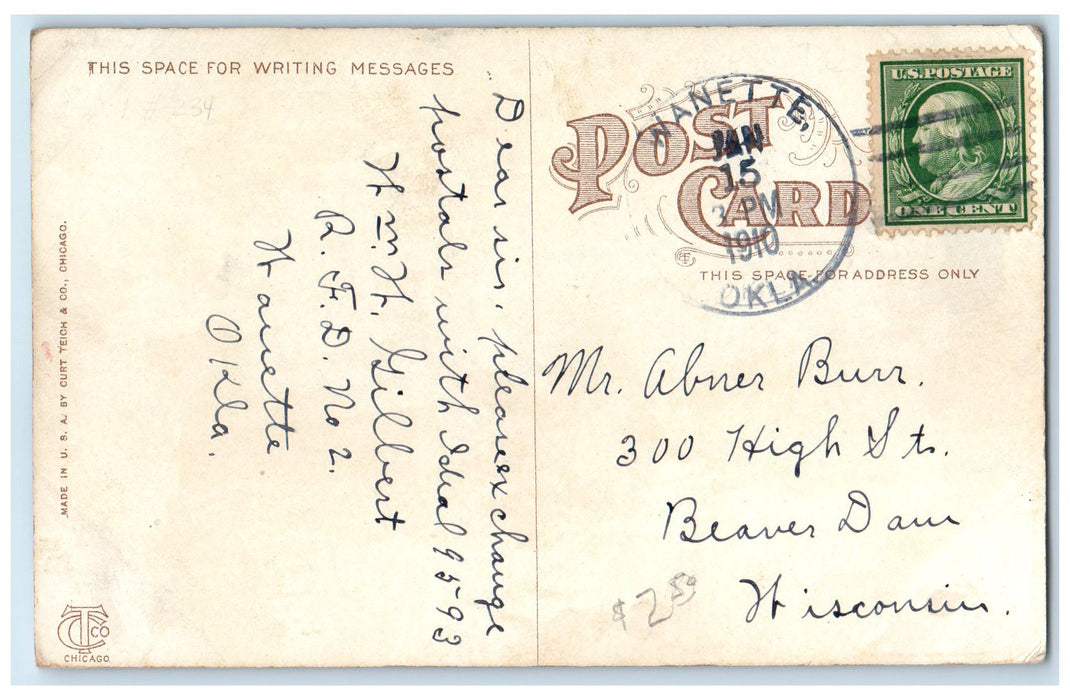 THIS SPACE FOR WRITING MESSAGES
# 234
Dear sir, please exchange
postals with Ideal 9593
Wm W. Gilbert
R. F. D. No 2.
Wanette
Okla.
MADE IN U. S. A. BY CURT TEICH & CO., CHICAGO.
CT CO
CHICAGO.
POST
CARD
WANETTE,
JAN
15
3 PM
1910
OKLA.
U.S. POSTAGE
ONE CENT
THIS SPACE FOR ADDRESS ONLY
Mr. Abner Burr.
300 High St.
Beaver Dam
Wisconsin.
$2.50